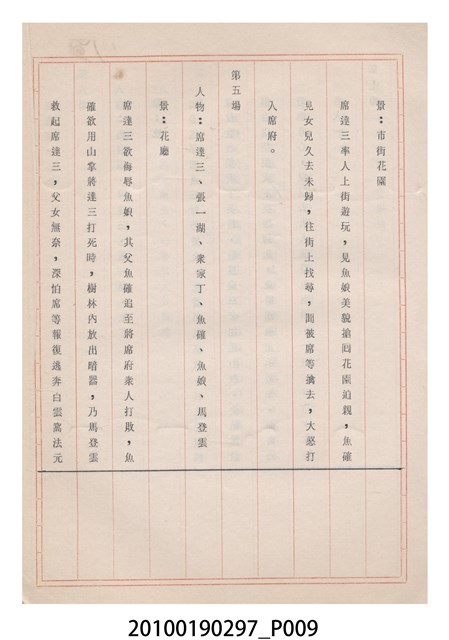 景：市街花園
席達三率人上街遊玩，見魚娘美貌搶囘花園迫親，魚確
見女兒久去未歸，往街上找尋，聞被席等擒去，大怒打
入席府。
第五場
人物：席達三、張一謝、衆家丁、魚確、魚娘、馬登雲
景：花廳
席達三欲侮辱魚娘，其父魚確追至將席府衆人打敗，魚
確欲用山拿將達三打死時，樹林內放出暗器，乃馬登雲
救起席達三，父女無奈，深怕席等報復逃奔白雲窩法元
20100190297_P009